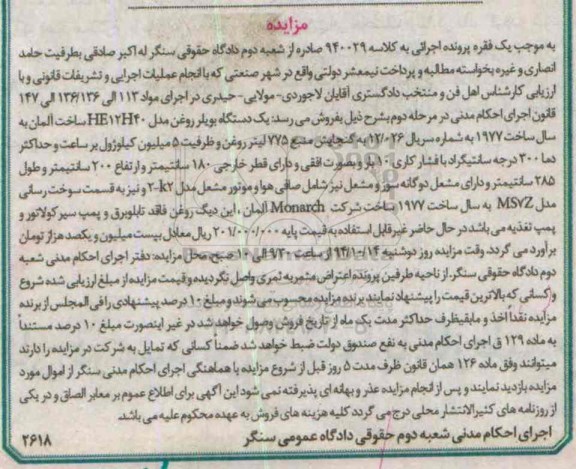 مزایده
به موجب یک فقره پرونده اجرائی به کلاسه ۹۴۰۰۲۹ صادره از شعبه دوم دادگاه حقوقی سنگر له اکبر صادقی بطرفیت حامد
انصاری و غیره بخواسته مطالبه و پرداخت نیمعشر دولتی واقع در شهر صنعتی که با انجام عملیات اجرایی و تشریفات قانونی و با
ارزیابی کارشناس اهل فن و منتخب دادگستری آقایان لاجوردی- مولایی- حیدری در اجرای مواد ۱۱۳ الی ۱۳۶/۱۳۶ الی ۱۴۷
قانون اجرای احکام مدنی در مرحله دوم بشرح ذیل بفروش می رسد: یک دستگاه بویلر روغن مدل HE۱۲H۴۰ ساخت آلمان به
سال ساخت ۱۹۷۷ به شماره سریال ۱۲/۰۲۶ به گنجایش منبع ۷۷۵ لیتر روغن و ظرفیت ۵ میلیون کیلوژول بر ساعت و حداکثر
دما ۳۰۰ درجه سانتیگراد با فشار کاری ۱۰ بار و بصورت افقی و دارای قطر خارجی ۱۸۰ سانتیمتر و ارتفاع ۲۰۰ سانتیمتر و طول
۲۸۵ سانتیمتر و دارای مشعل دوگانه سوز و مشعل نیز شامل صافی هوا و موتور مشعل مدل ۲-k۲ و نیز به قسمت سوخت رسانی
مدل MS۷Z به سال ساخت ۱۹۷۷ ساخت شرکت Monarch آلمان ، این دیگ روغن فاقد تابلوبرق و پمپ سیرکولاتور و
پمپ تغذیه می باشد در حال حاضر غیرقابل استفاده به قیمت پایه ۲۰۱/۰۰۰/۰۰۰ ریال معادل بیست میلیون و یکصد هزار تومان
برآورد می گردد. وقت مزایده روز دوشنبه ۹۴/۱۰/۱۴ از ساعت ۷:۳۰ الی ۱۰ صبح محل مزایده: دفتر اجرای احکام مدنی شعبه
دوم دادگاه حقوقی سنگر. از ناحیه طرفین پرونده اعتراض مثمر به ثمری واصل نگردیده و قیمت مزایده از مبلغ ارزیابی شده شروع
و کسانی که بالاترین قیمت را پیشنهاد نمایند برنده مزایده محسوب می شوند و مبلغ ۱۰ درصد پیشنهادی را فی المجلس از برنده
مزایده نقداً اخذ و مابقی ظرف حداکثر مدت یک ماه از تاریخ فروش وصول خواهد شد در غیر اینصورت مبلغ ۱۰ درصد مستنداً
به ماده ۱۲۹ ق اجرای احکام مدنی به نفع صندوق دولت ضبط خواهد شد ضمناً کسانی که تمایل به شرکت در مزایده را دارند
میتوانند وفق ماده ۱۲۶ همان قانون ظرف مدت ۵ روز قبل از شروع مزایده با هماهنگی اجرای احکام مدنی سنگر از اموال مورد
مزایده بازدید نمایند و پس از انجام مزایده عذر و بهانه ای پذیرفته نمی شود این آگهی برای اطلاع عموم بر معابر الصاق و در یکی
از روزنامه های کثیرالانتشار محلی درج می گردد کلیه هزینه های فروش به عهده محکوم علیه می باشد.
اجرای احکام مدنی شعبه دوم حقوقی دادگاه عمومی سنگر ۲۶۱۸